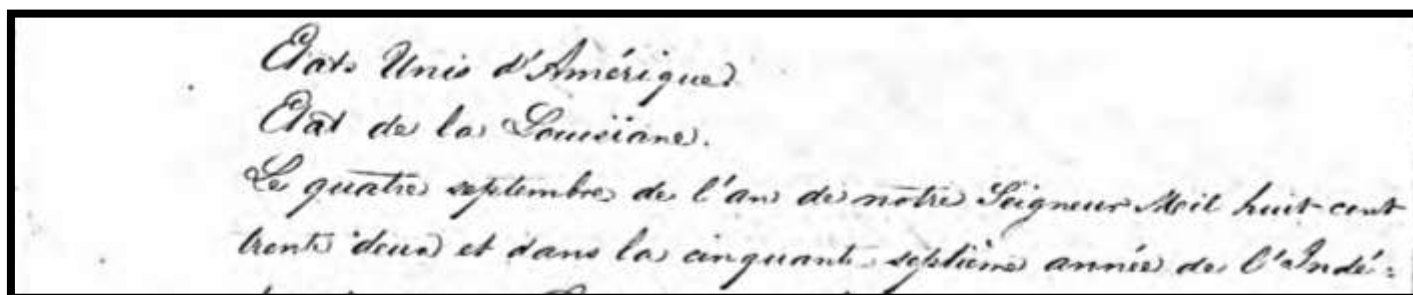 Etats Unis d'Amérique
Etat de la Louisiane.
Le quatre septembre de l'an de notre Seigneur Mil huit cent
trente deux et dans la cinquante septième année de l'Indé=